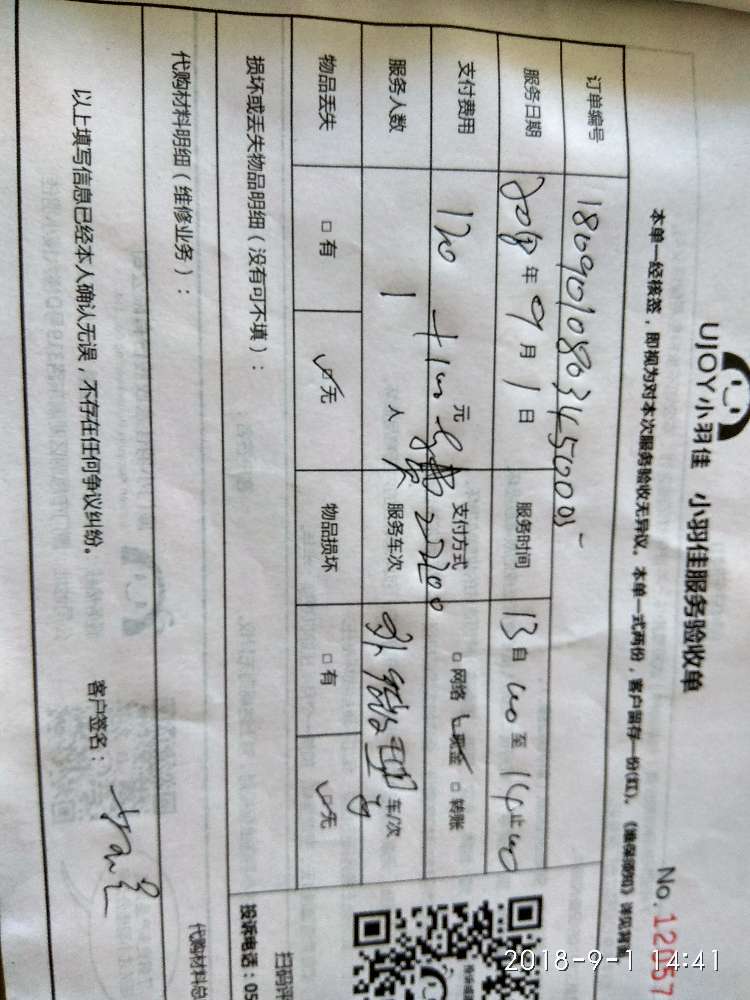 UJOY小羽佳 小羽佳服务验收单
No.12057
本单一经核签，即视为对本次服务验收无异议。本单一式两份，客户留存一份(红)。
订单编号
服务日期 2018年9月1日 服务时间 13自00至14止00
支付费用 120 元 支付方式 □网络 现金 □转账
服务人数 1 人 服务车次 车/次
物品丢失 □有 ☑无 物品损坏 □有 ☑无
损坏或丢失物品明细（没有可不填）：
代购材料明细（维修业务）： 代购材料总
以上填写信息已经本人确认无误，不存在任何争议纠纷。 客户签名：
扫码评
投诉电话：05
2018-9-1 14:41